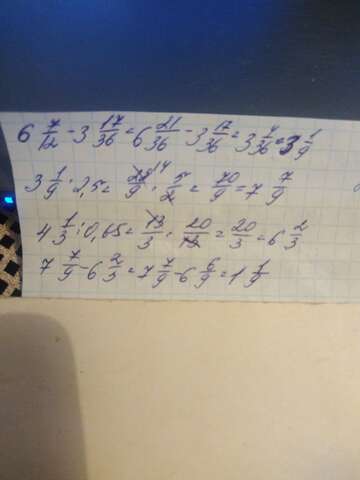 6 7/12 - 3 17/36 = 6 21/36 - 3 17/36 = 3 4/36 = 3 1/9
3 1/9 · 2,5 = 28/9 14 · 5/2 = 70/9 = 7 7/9
4 1/3 : 0,65 = 13/3 · 20/13 = 20/3 = 6 2/3
7 7/9 - 6 2/3 = 7 7/9 - 6 6/9 = 1 1/9